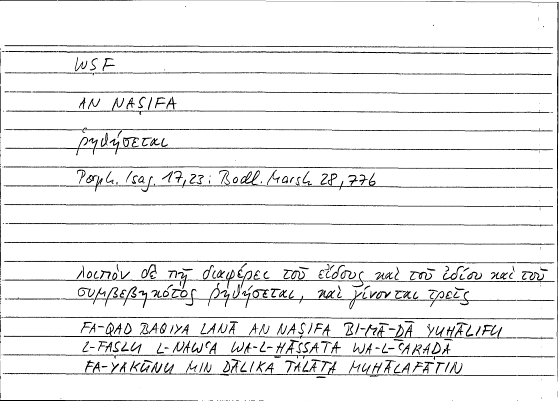 WṢF
AN NAṢIFA
ῥηθήσεται
Porph. Isag. 17,23: Bodl. Marsh 28,776
λοιπὸν δὲ πῇ διαφέρει τοῦ εἴδους καὶ τοῦ ἰδίου καὶ τοῦ
συμβεβηκότος ῥηθήσεται, καὶ γίνονται τρεῖς
FA-QAD BAQIYA LANĀ AN NAṢIFA BI-MĀ-ḎĀ YUḪĀLIFU
L-FAṢLU L-NAWʿA WA-L-ḪĀṢṢATA WA-L-ʿARAḌA
FA-YAKŪNU MIN ḎĀLIKA ṮALĀṮA MUḪĀLAFĀTIN